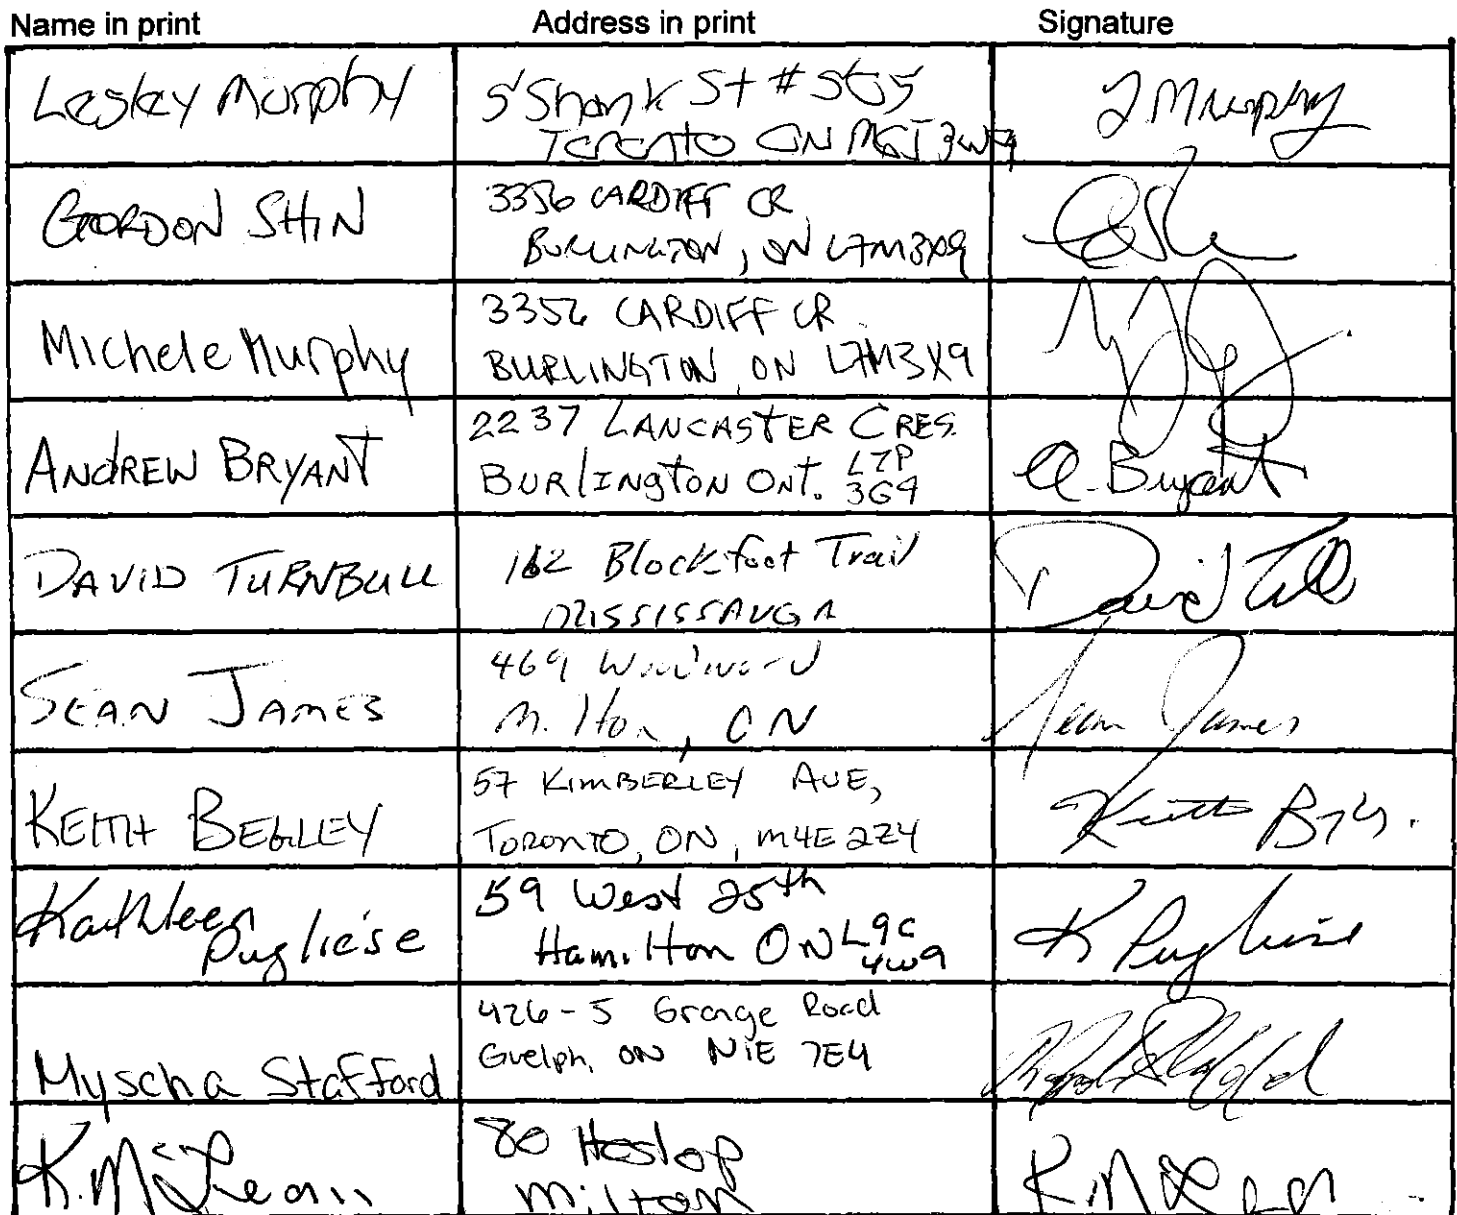 Name in print Address in print Signature
Lesley Murphy
5 Shank St #
Toronto ON
L Murphy
GORDON SHIN
3356 CARDIFF CR
BURLINGTON, ON L7M3X9
Michele Murphy
3356 CARDIFF CR.
BURLINGTON, ON L7M3X9
ANDREW BRYANT
2237 LANCASTER CRES.
BURlINgTON ONT. L7P
3G9
A. Bryant
DAVID TURNBULL
162 Blackfoot Trail
MISSISSAUGA
David
SEAN JAMES
469
Milton, ON
Sean James
KEITH BEGLEY
57 KIMBERLEY AVE,
TORONTO, ON, M4E 2Z4
Keith
Kathleen
Pugliese
59 West 25th
Hamilton ON L9C
4W9
K Pugliese
Myscha Stafford
426-5 Grange Road
Guelph, ON N1E 7E4
K. McLean
80 Heslop
Milton
K. McLean